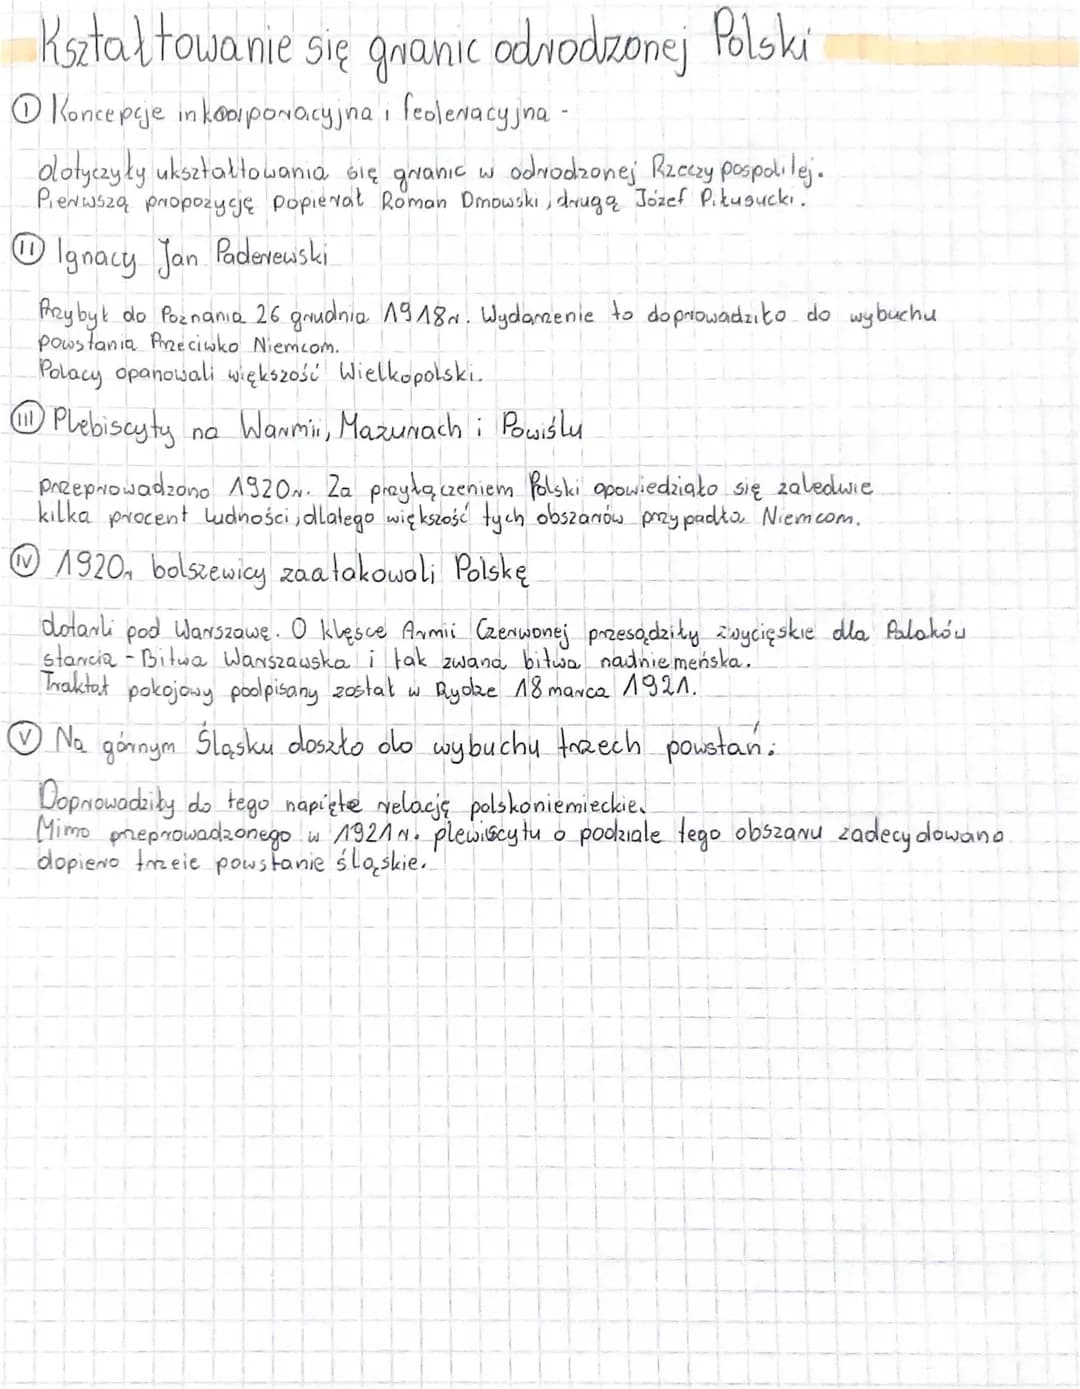 Kształtowanie się granic odrodzonej Polski
I Koncepcje inkorporacyjna i federacyjna -
dotyczyły ukształtowania się granic w odrodzonej Rzeczypospolitej.
Pierwszą propozycję popierał Roman Dmowski, drugą Józef Piłsudcki.
II Ignacy Jan Paderewski
Przybył do Poznania 26 grudnia 1918r. Wydarzenie to doprowadziło do wybuchu
powstania Przeciwko Niemcom.
Polacy opanowali większość Wielkopolski.
III Plebiscyty na Warmii, Mazurach i Powiślu
przeprowadzono 1920r. Za przyłączeniem Polski opowiedziało się zaledwie
kilka procent ludności, dlatego większość tych obszarów przypadła Niemcom.
IV 1920r bolszewicy zaatakowali Polskę
dotarli pod Warszawę. O klęsce Armii Czerwonej przesądziły zwycięskie dla Polaków
starcia - Bitwa Warszawska i tak zwana bitwa nadniemeńska.
Traktat pokojowy podpisany został w Rydze 18 marca 1921.
V Na górnym Śląsku doszło do wybuchu trzech powstań:
Doprowadziły do tego napięte relację polskoniemieckie.
Mimo przeprowadzonego w 1921r. plewiscytu o podziale tego obszaru zadecydowano
dopiero trzeie powstanie śląskie.